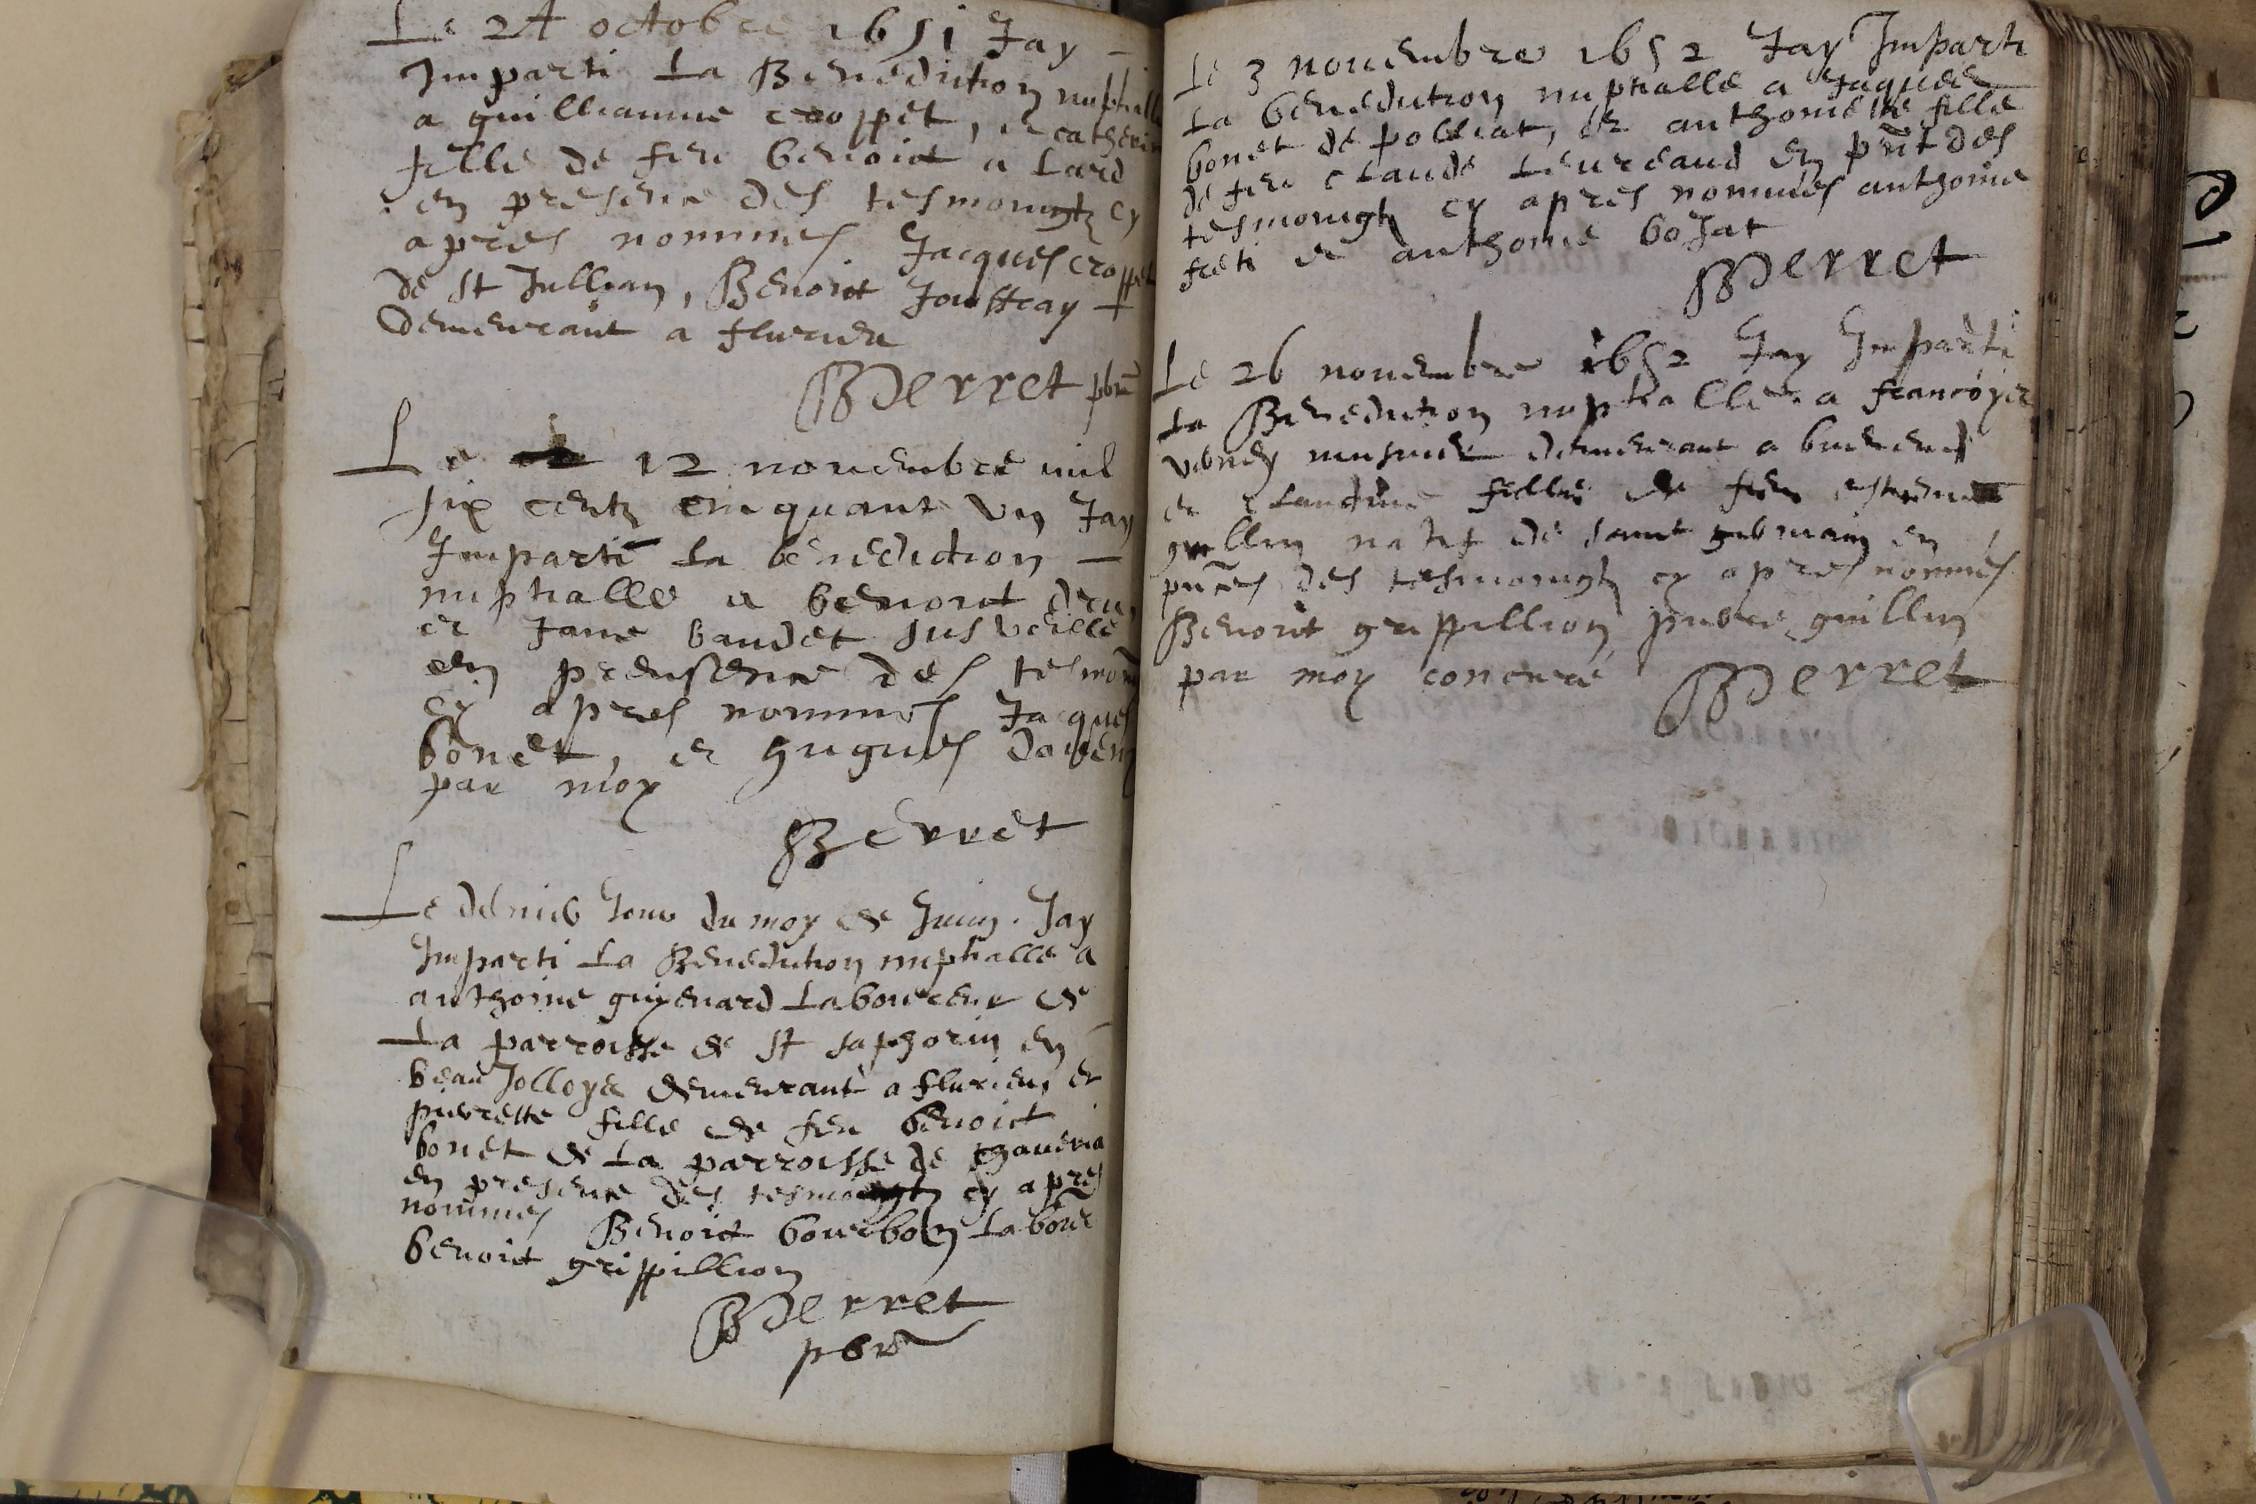 Le 24 octobre 1651 Jay
Imparti La Benediction nuptialle
a guilliaume croppet, et catherin
fille de feu benoict a Lard
en presence des tesmoingtz cy
apres nommes Jacques croppet
de st Jullian, Benoict Jousstray
demeurant a flurieu
Berret pbr̃e
Le 12 nouembre mil
six centz cinquante Vng Jay
Imparti La benediction
nuptialle a benoict dru,
et Jane baudet
en preusence des tesmoin
cy apres nommes Jacques
bonet, et hugues
par moy
Berret
Le dernier Jour du moy de Juing. Jay
Imparti La Benediction nuptialle a
anthoine guyenard Laboureur de
La parroisse de st saphorin en
beau Jolloys demeurant a flurieu, et
pierrette fille de feu benoict
bonet de La parroisse de chaueria
en presence des tesmoingtz cy apres
nommes Benoict bourbon Labour
benoict grippillion
Berret
pbr̃
Le 3 nouembre 1652 Jay Imparti
La benediction nuptialle a Jaques
bonet de polliat, et anthoinette fille
de feu claude Leureaud en pñt des
tesmoingtz cy apres nommes anthoine
freti et anthoine boJat
Berret
Le 26 nouembre 1652 Jay Imparti
La Benediction nuptialle a francoys
demeurant a
et claudine fille de feu
guillin natif de saint germain en
pñces des tesmoingtz cy apres nommes
Benoict grippillion pierre guillin
par moy
Berret